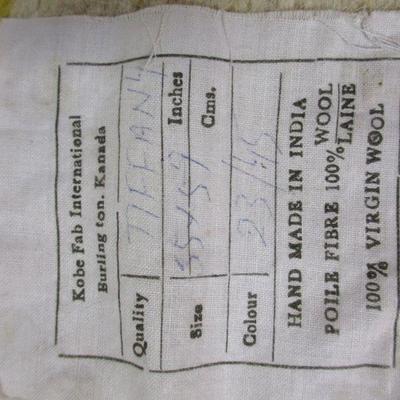 Kobe Fab International
Burling ton. Kanada
Quality TIFFANY
Size Inches
Cms.
Colour 23/45
HAND MADE IN INDIA
WOOL
POILE FIBRE 100% LAINE
100% VIRGIN WOOL